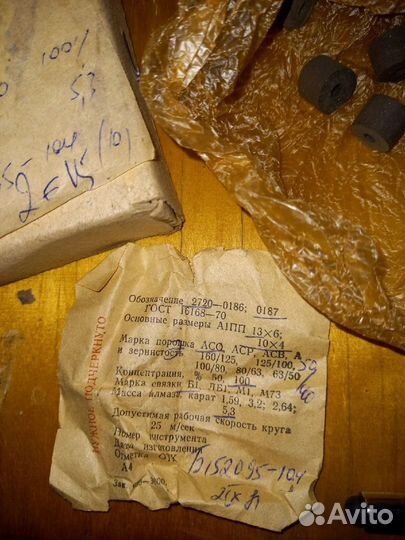 1001
5,3
101
Обозначение 2720—0186; 0187
ГОСТ 16168—70
Основные размеры А1ПП 13×6;
10×4
Марка порошка АСО, АСР, АСВ, А
и зернистость 160/125, 125/100,
100/80, 80/63, 63/50
50
40
Концентрация, % 50, 100
Марка связки Б1, ТБ1, М1, М73
Масса алмаза, карат 1,59, 3,2; 2,64;
5,3
Допустимая рабочая скорость круга
25 м/сек
Номер инструмента
Дата изготовления
Отметка ОТК
А4
Зак.
НУЖНОЕ ПОДЧЕРКНУТО
Б152095-104
Avito